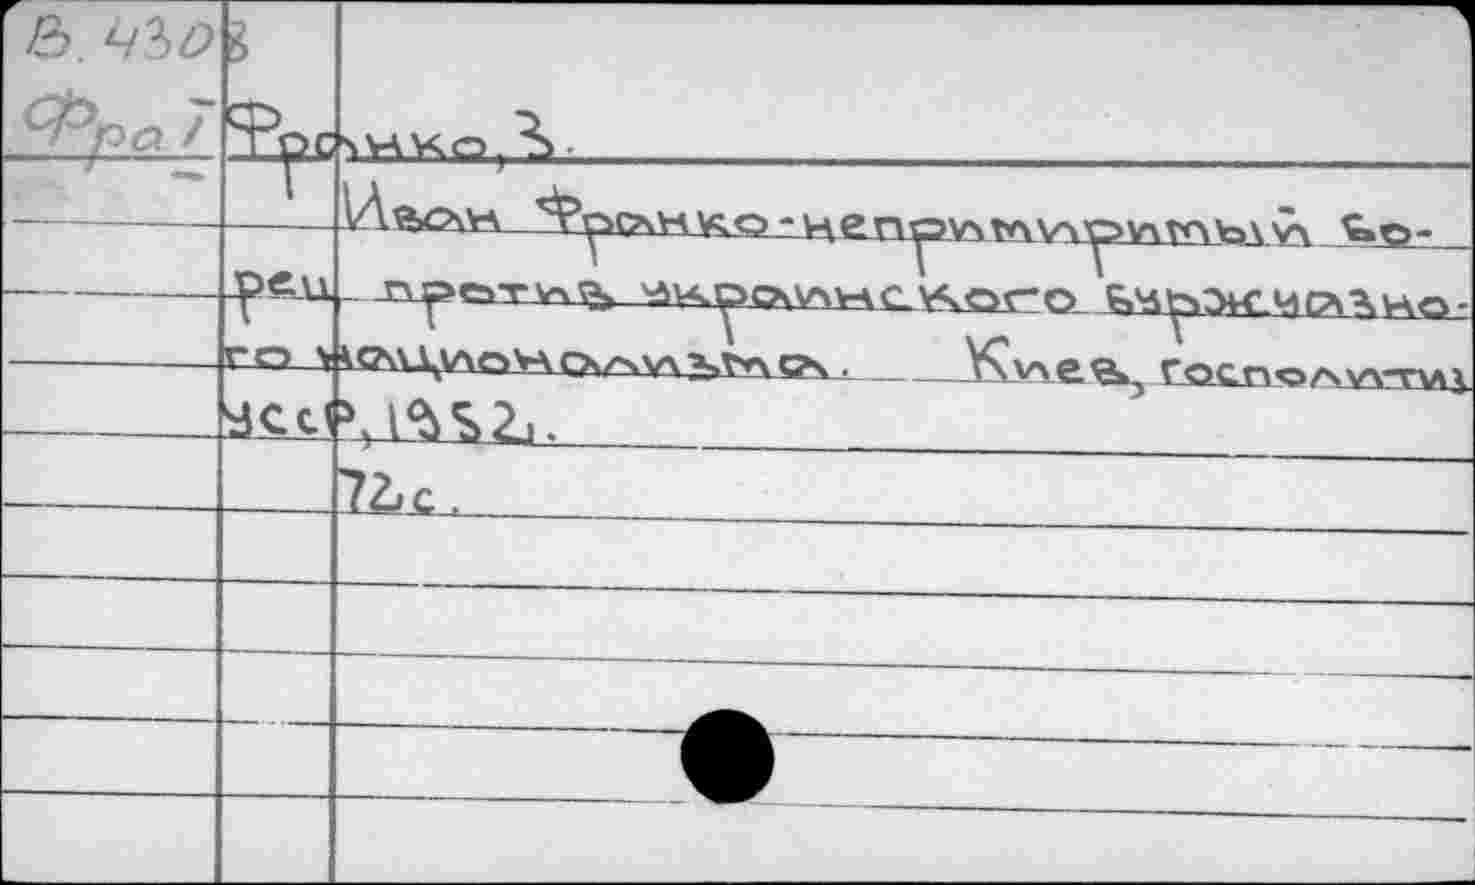 В. 4308
Фра
Франко, З.
Иван Франко - непримиримый бо-
рец против украинского буржуазно-
го национализма. Киев, Госполити
УССР, 1952.
72 с.